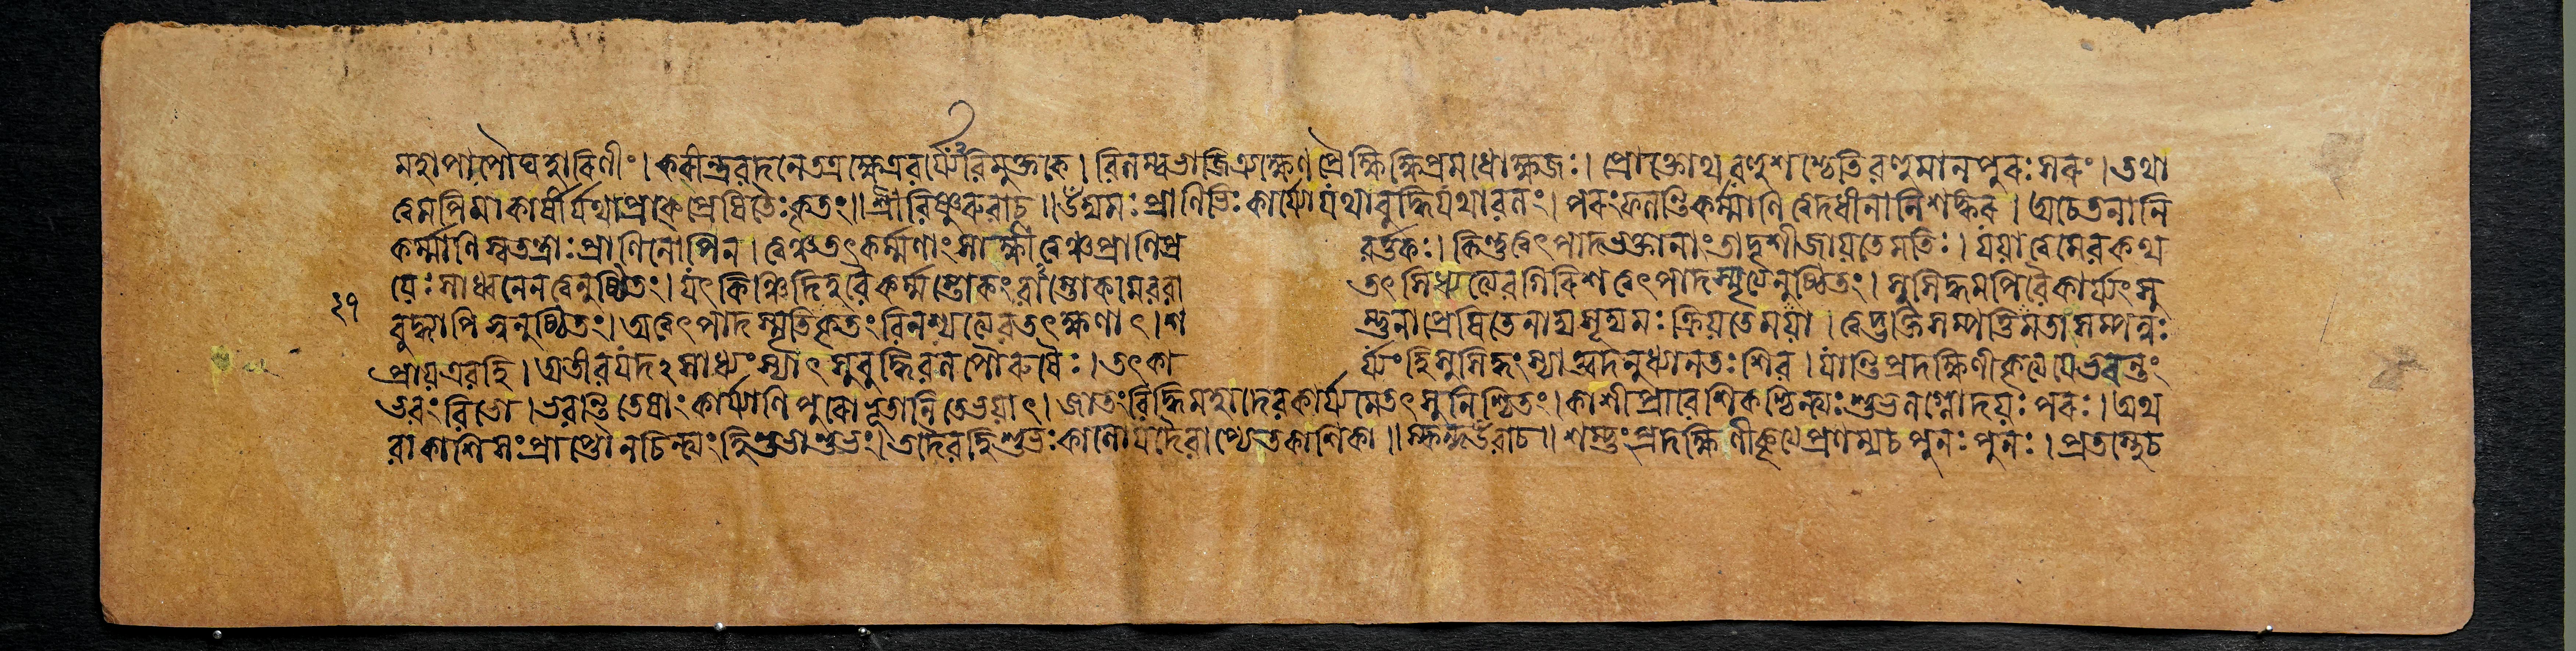 মহাপাপৌঘহারিণীং । করীন্দ্রবদনেতত্রক্ষেত্রবর্য্যেঽবিমুক্তকে । বিলম্বভাজিত্র্যক্ষেণপ্রৈক্ষিক্ষিপ্রমধোক্ষজঃ । প্রোক্তোথবহুশশ্চেতিবহুমানপুরঃসরং । তথা
ত্বমপিমাকার্ষীর্যথাপ্রাক্প্রেষিতৈঃকৃতং ॥ শ্রীবিষ্ণুরুবাচ ॥ উঁদ্যমঃপ্রাণিভিঃকার্য্যোযথাবুদ্ধিযথাবলং । পরংফলন্তিকর্ম্মাণিত্বদধীনানিশঙ্কর । অচেতনানি
কর্ম্মাণিস্বতন্ত্রাঃপ্রাণিনোপিন । ত্বঞ্চতৎকর্ম্মণাংসাক্ষীত্বঞ্চপ্রাণিপ্র বর্ত্তকঃ । কিন্তুত্বৎপাদভক্তানাংতাদৃশীজায়তেমতিঃ । যয়াত্বমেবকথ
য়েঃসাধ্বনেনত্বনুষ্ঠিতং । যৎকিঞ্চিদিহবৈকর্ম্মস্তোকংবাঽস্তোকামববা তৎসিধ্যত্যেবগিরিশত্বৎপাদস্মৃত্যেনুষ্ঠিতং । সুসিদ্ধমপিবৈকার্য্যংসু
২১
বুদ্ধ্যাপিস্বনুষ্ঠিতং । অত্বৎপাদস্মৃতিকৃতংবিনশ্যত্যেবতৎক্ষণাৎ । শ ম্ভুনাপ্রেষিতেনাদ্যসূদ্যমঃক্রিয়তেময়া । ত্বদ্ভক্তিসম্পত্তিমতাংসম্পন্নঃ
প্রায়এবহি । অতীবযদ২সাধ্যংস্যাৎসুবুদ্ধিবলপৌরুষৈঃ । তৎকা র্য্যংহিসুসিদ্ধংস্যাত্ত্বদনুধ্যানতঃশিব । যান্তিপ্রদক্ষিণীকৃত্যেযেভবন্তং
ভবংবিভো । ভবন্তিতেষাংকার্য্যাণিপুরোভূতানিতেভয়াৎ । জাতংবিদ্ধিমহাদেবকার্য্যমেতৎসুনিশ্চিতং । কাশীপ্রাবেশিকশ্চিন্ত্যঃশুভলগ্নোদয়ঃপরঃ । অথ
বাকাশিসংপ্রাপ্তৌনচিন্ত্যংহিশুভাশুভং । তদৈবহিশুভঃকালোযদৈবাপ্যেতকাশিকা ॥ স্কন্দউঁবাচ ॥ শম্ভুংপ্রদক্ষিণীকৃত্যেপ্রণম্যচপুনঃপুনঃ । প্রতস্থেচ